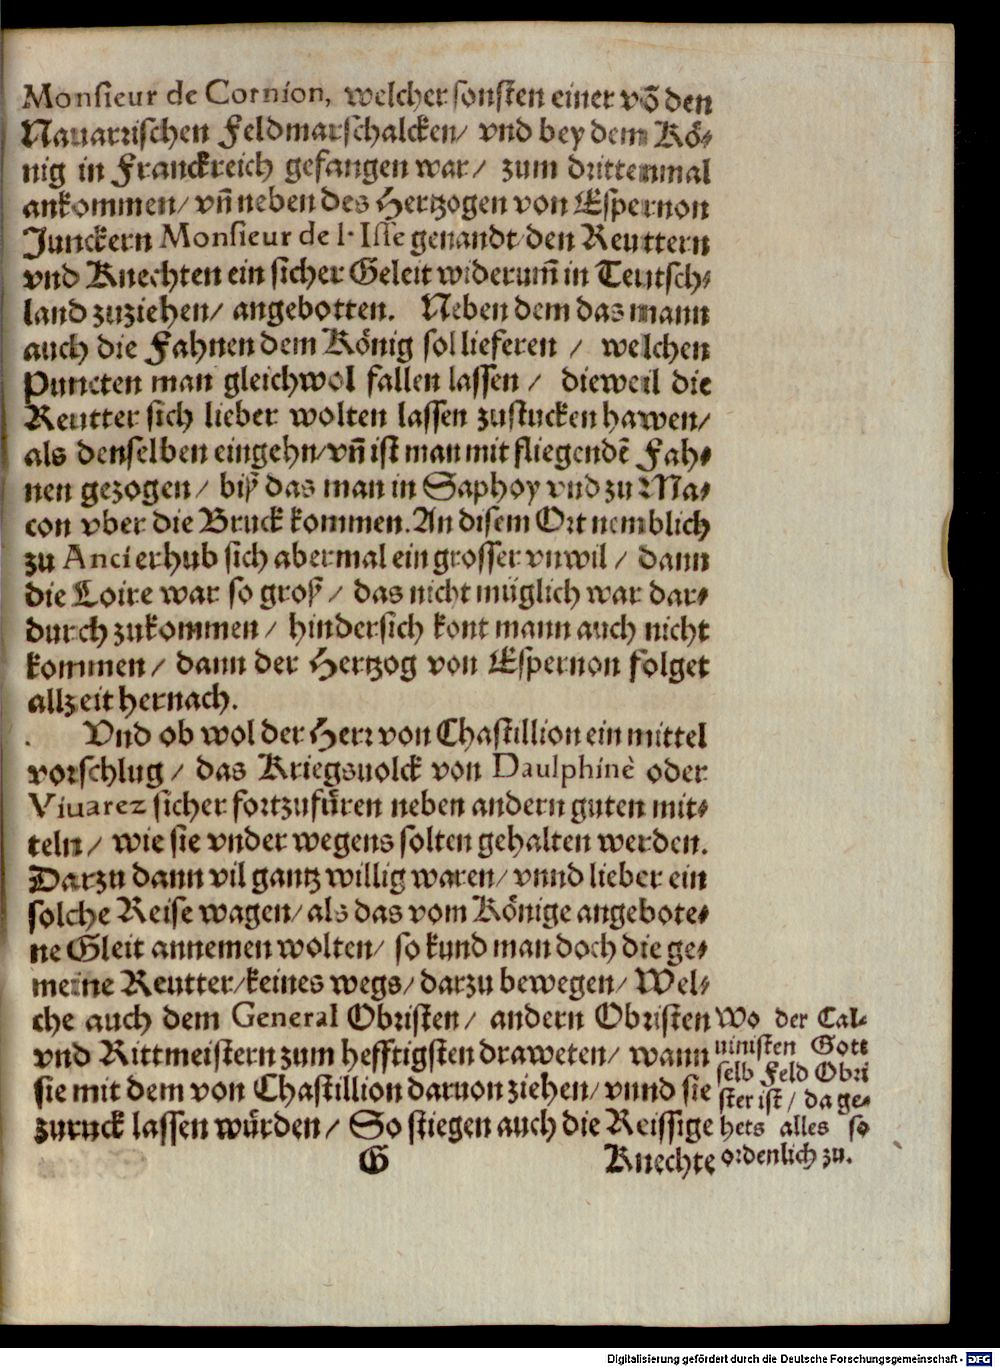 Monsieur de Cornion, welcher sonsten einer võ den
Nauarrischen Feldmarschalcken/ vnd bey dem Kö⸗
nig in Franckreich gefangen war/ zum drittenmal
ankommen/ vñ neben des Hertzogen von Espernon
Junckern Monsieur de l'Isse genandt/ den Reuttern
vnd Knechten ein sicher Geleit widerum̃ in Teutsch⸗
land zuziehen/ angebotten. Neben dem das mann
auch die Fahnen dem König sol lieferen / welchen
Puncten man gleichwol fallen lassen / dieweil die
Reutter sich lieber wolten lassen zustucken hawen/
als denselben eingehn/ vñ ist man mit fliegendẽ Fah⸗
nen gezogen/ biß das man in Saphoy vnd zu Ma⸗
con vber die Bruck kommen. An disem Ort nemblich
zu Anci erhub sich abermal ein grosser vnwil / dann
die Loire war so groß / das nicht müglich war dar⸗
durch zukommen / hindersich kont mann auch nicht
kommen/ dann der Hertzog von Espernon folget
allzeit hernach.
Vnd ob wol der Herr von Chastillion ein mittel
vorschlug / das Kriegsuolck von Daulphinè oder
Viuarez sicher fortzufüren neben andern guten mit⸗
teln / wie sie vnder wegens solten gehalten werden.
Darzu dann vil gantz willig waren/ vnnd lieber ein
solche Reise wagen/ als das vom Könige angebote⸗
ne Gleit annemen wolten/ so kund man doch die ge⸗
meine Reutter/ keines wegs/ darzu bewegen/ Wel⸗
che auch dem General Obristen/ andern Obristen
vnd Rittmeistern zum hefftigsten draweten/ wann
sie mit dem von Chastillion daruon ziehen/ vnnd sie
zuruck lassen würden / So stiegen auch die Reissige
G Knechte
Wo der Cal⸗
uinisten Gott
selb Feld Obri
ster ist / da ge⸗
hets alles so
ordenlich zu.
Digitalisierung gefördert durch die Deutsche Forschungsgemeinschaft - DFG